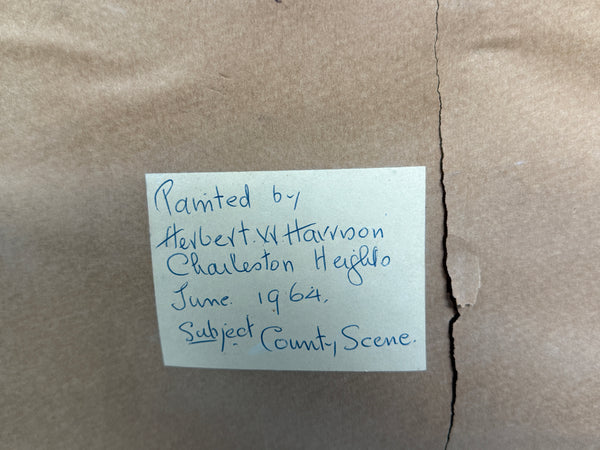 Painted by
Herbert. W Harrison
Charleston Heights
June. 1964.
Subject County Scene.